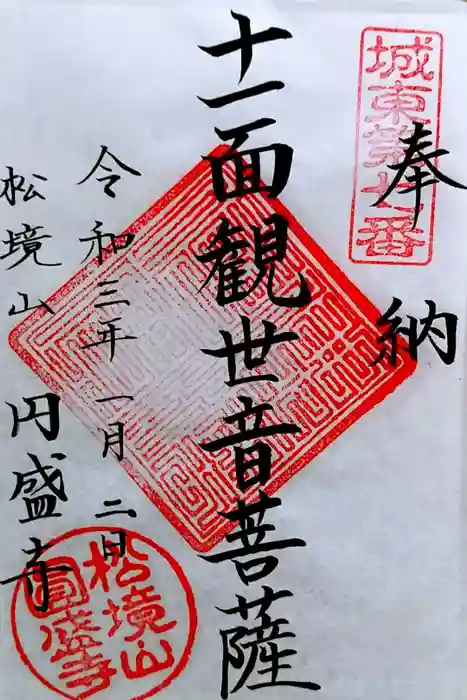 奉納
十一面観世音菩薩
令和三年一月二日
松境山 円盛寺
松境山
圓盛寺